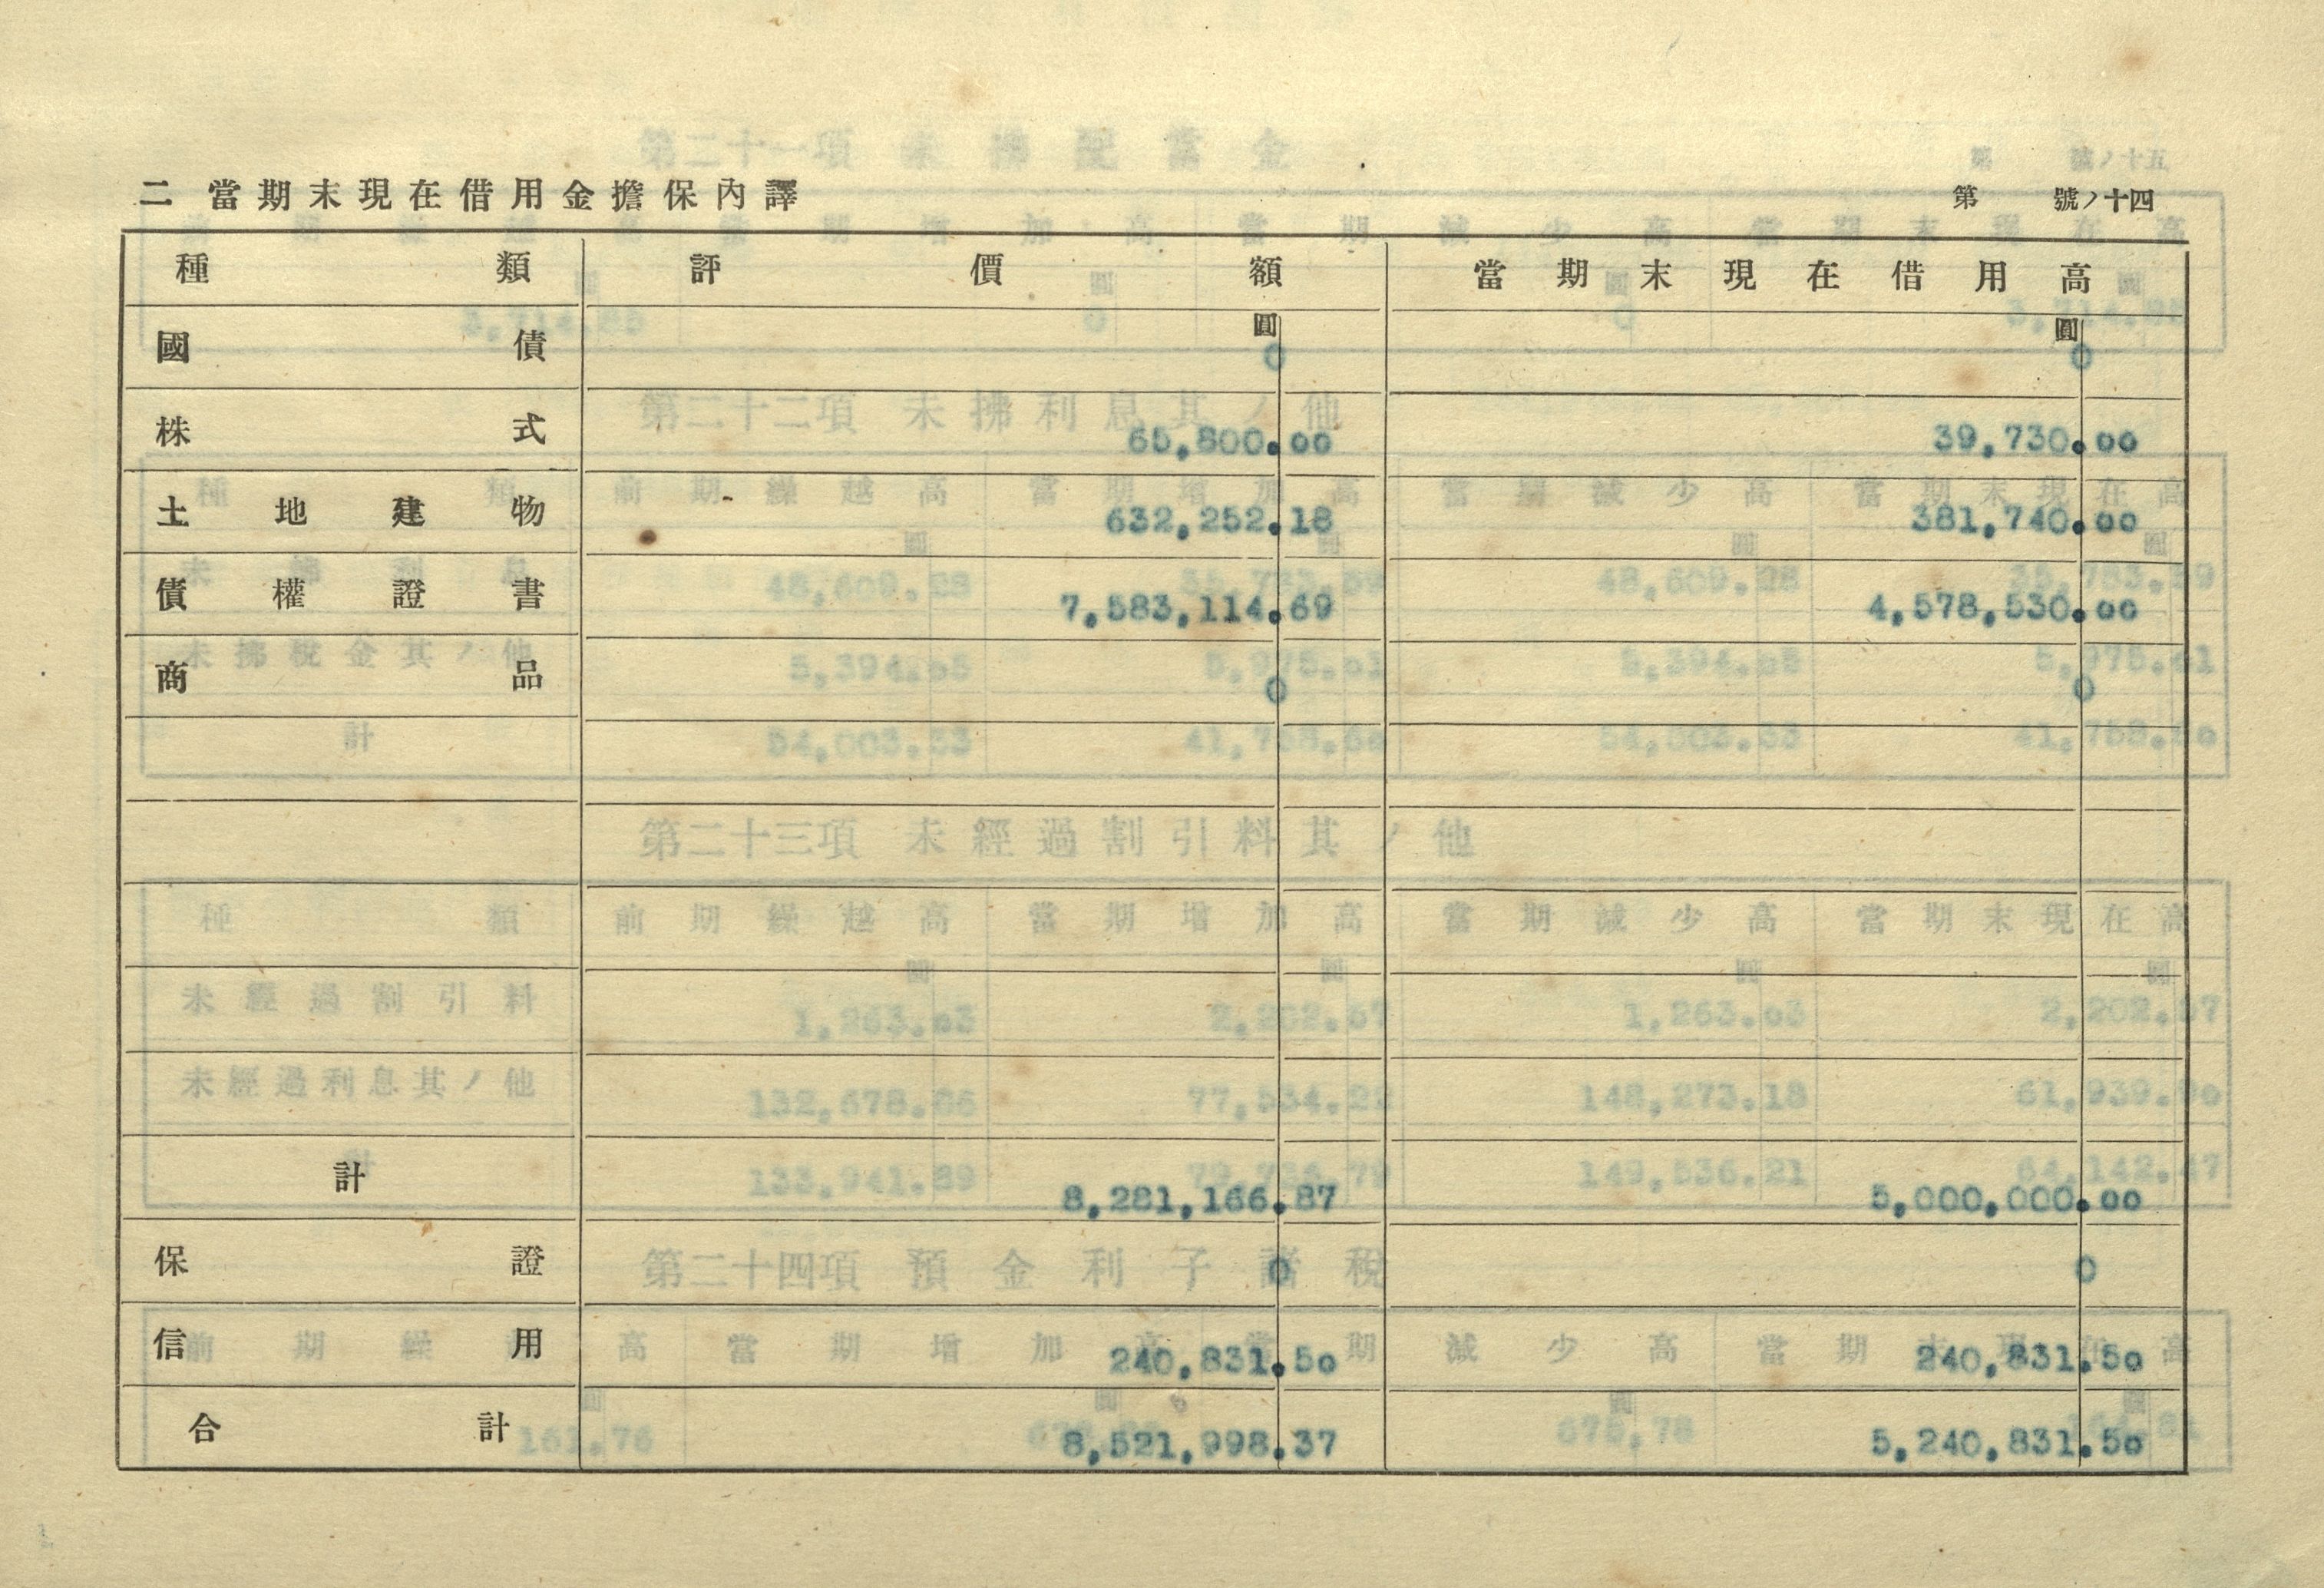 二 當期末現在借用金擔保內譯
第 號ノ十四
種類 評價額 當期末現在借用高
國債 圓 0 圓 0
株式 65,800.00 39,730.00
土地建物 632,252.18 381,740.00
債權證書 7,583,114.69 4,578,530.00
商品 0 0
計 8,281,166.87 5,000,000.00
保證 0 0
信用 240,831.50 240,831.50
合計 8,521,998.37 5,240,831.50